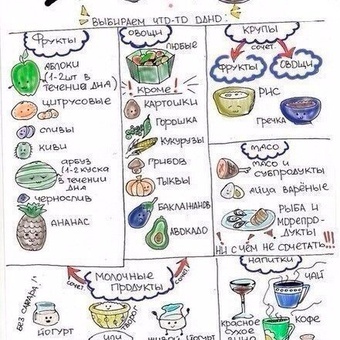 ВЫБИРАЕМ ЧТО-ТО ОДНО:
ФРУКТЫ
ЯБЛОКИ
(1-2шт в
течении
дня)
ЦИТРУСОВЫЕ
СЛИВЫ
КИВИ
АРБУЗ
(1-2 куска
в течении
дня
ЧЕРНОСЛИВ
АНАНАС
ОВОЩИ
ЛЮБЫЕ
КРОМЕ:
КАРТОШКИ
ГОРОШКА
КУКУРУЗЫ
ГРИБОВ
ТЫКВЫ
БАКЛАЖАНОВ
АВОКАДО
КРУПЫ
СОЧЕТ.
ФРУКТЫ
ОВОЩИ
РИС
ГРЕЧКА
МЯСО
МЯСО и
СУБПРОДУКТЫ
ЯЙЦА ВАРЁНЫЕ
РЫБА И
МОРЕПРО-
ДУКТЫ
НИ С ЧЕМ НЕ СОЧЕТАТЬ!!!
СОЧЕТ.
МОЛОЧНЫЕ
ПРОДУКТЫ
СОЧЕТ.
БЕЗ САХАРА!
ЙОГУРТ
ТВОРОГ
ИЛИ
ЖИВОЙ ЙОГУРТ
НАПИТКИ
ЧАЙ
КРАСНОЕ
СУХОЕ
ВИНО
КОФЕ